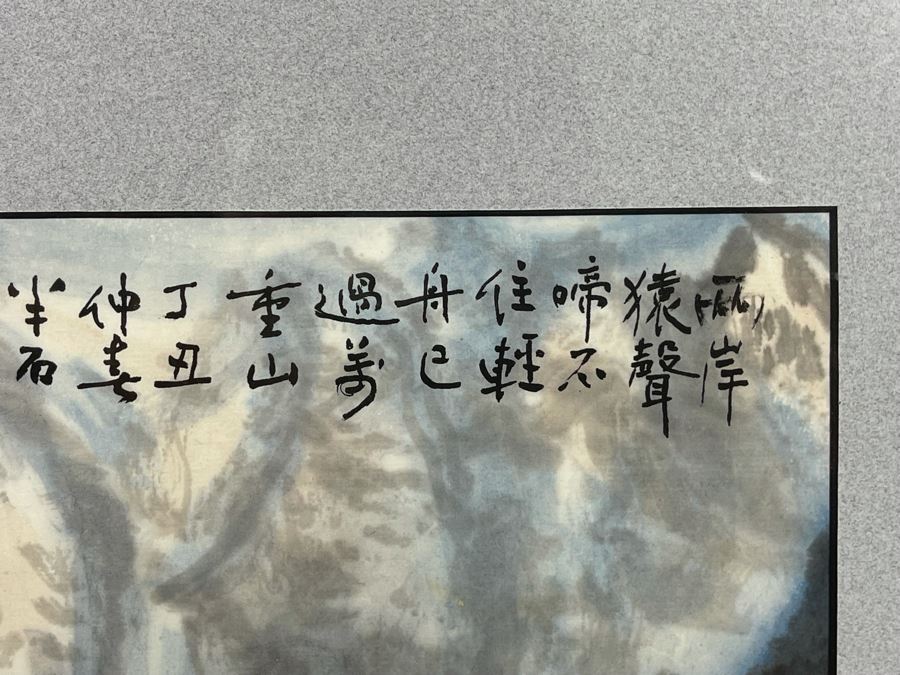 兩岸
猿聲
啼不
住輕
舟已
過萬
重山
丁丑
仲春
半石